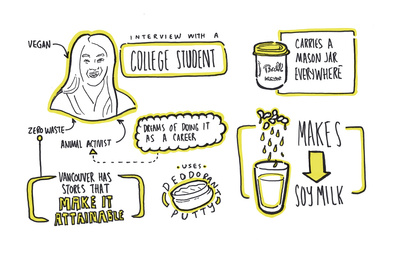 VEGAN
INTERVIEW WITH A
COLLEGE STUDENT
ZERO WASTE
ANIMAL ACTIVIST
DREAMS OF DOING IT
AS A CAREER
VANCOUVER HAS
STORES THAT
MAKE IT
ATTAINABLE
USES
DEODORANT
PUTTY
CARRIES A
MASON JAR
EVERYWHERE
Ball
MASON
MAKES
SOY MILK